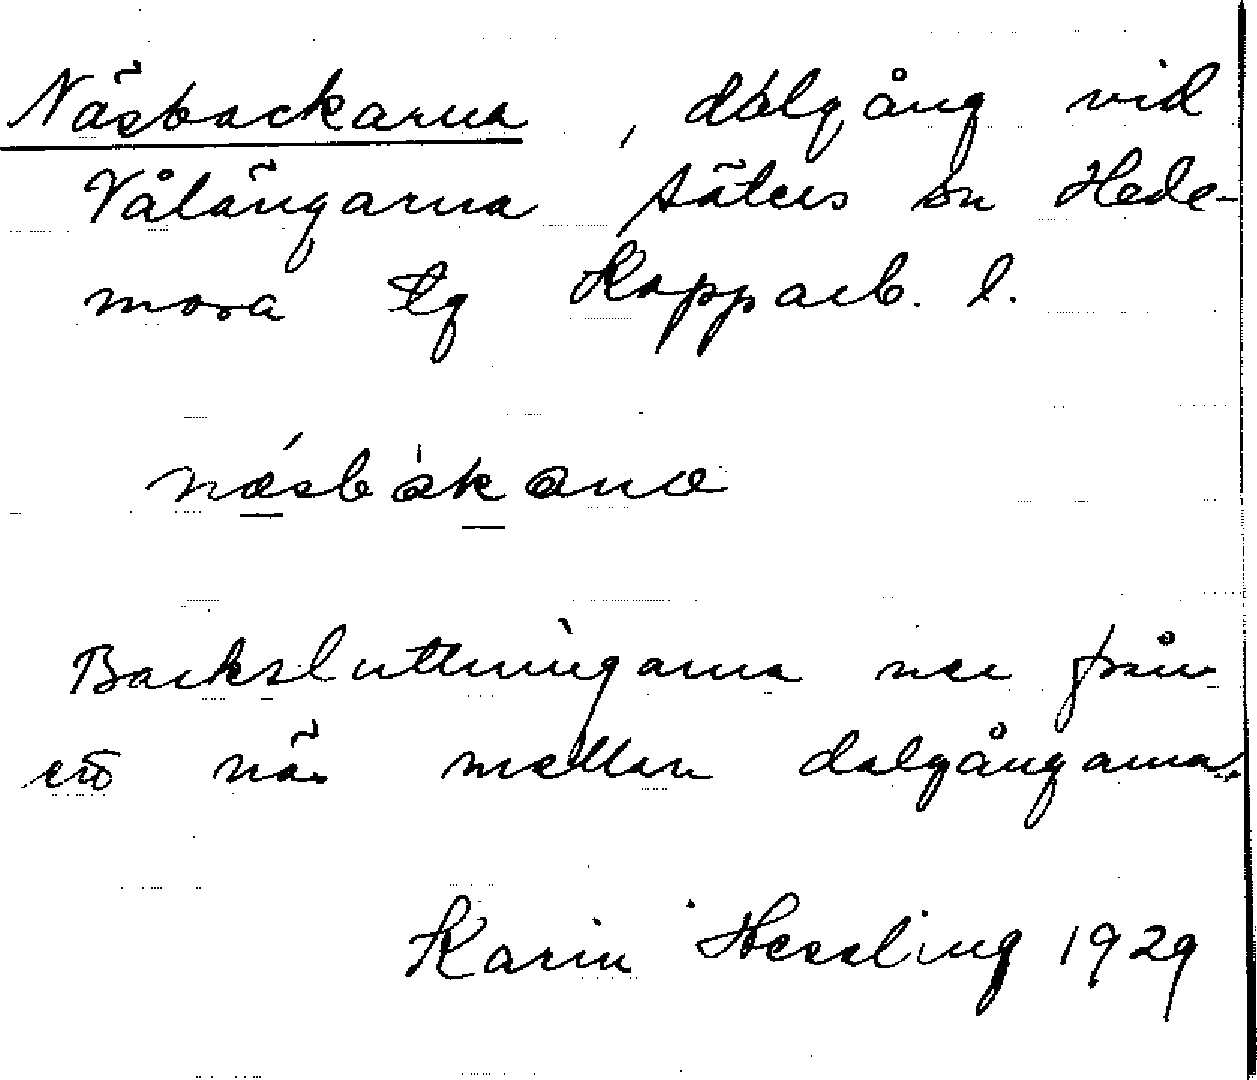 Näsbackarna, dalgång vid
Vålängarna Säters sn Hede-
mora tg Kopparb. l.
nǽsbákana
Backsluttningarna ner från
ett näs mellan dalgångarna.
Karin Hessling 1929